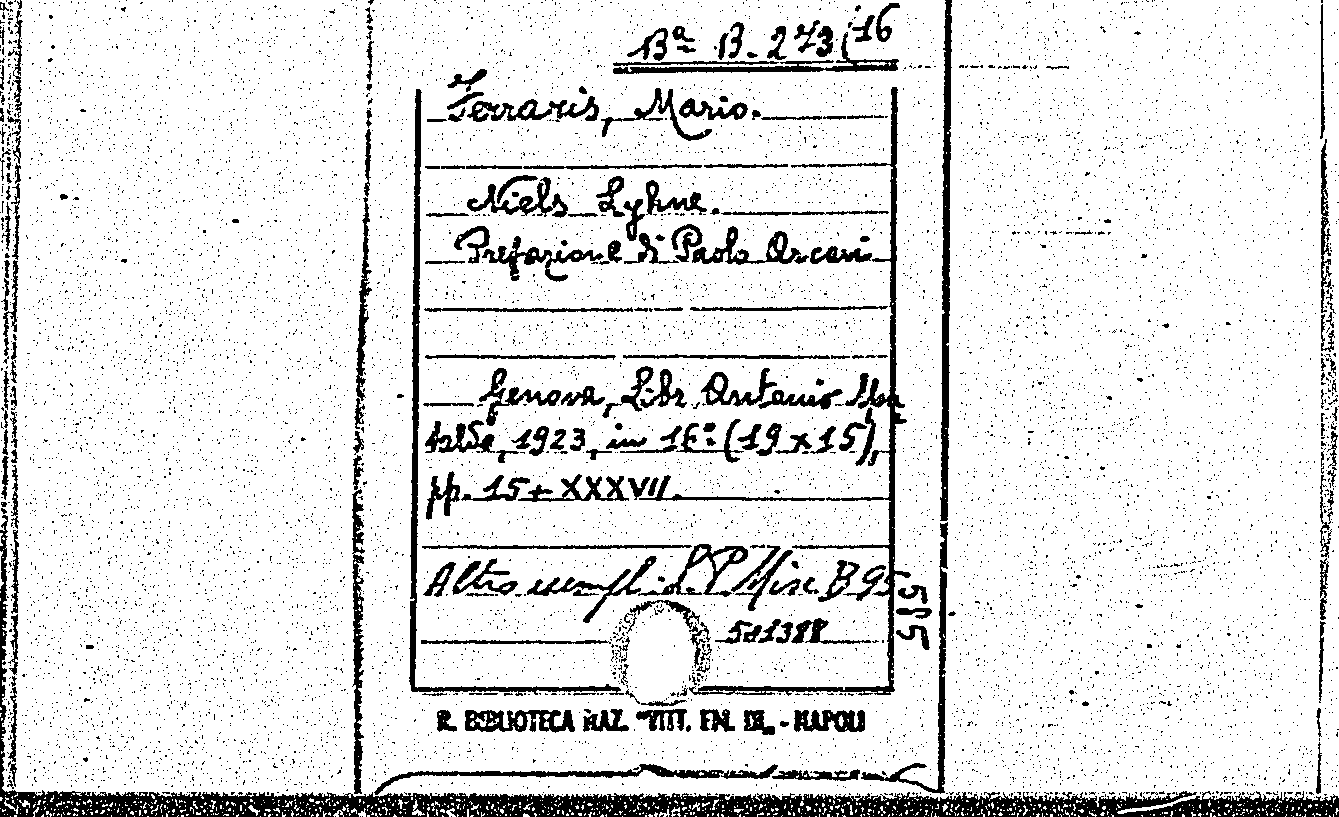 Bª B. 273(16
Ferraris, Mario.
Niels Lyhne.
Prefazione di Paolo Arcari
Genova, Libr. Antonio
1923, in 16º (19 x 15),
pp. 15 + XXXVII.
Altro esempl. L. P. Misc B 95
585
581388
R. BIBLIOTECA NAZ. "VITT. EM. III„ - NAPOLI